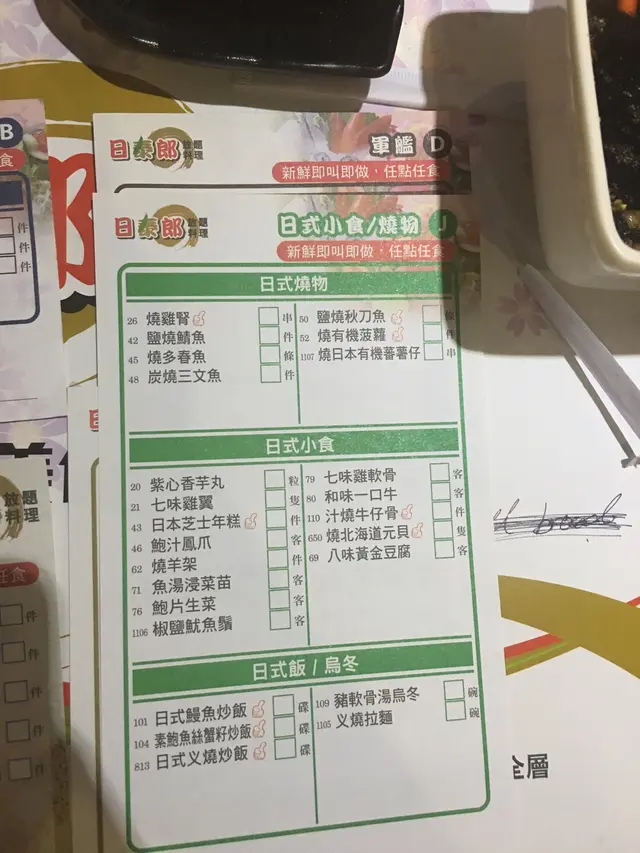 日泰郎 放題料理
軍艦 D
新鮮即叫即做，任點任食
日泰郎 放題料理
日式小食/燒物 J
新鮮即叫即做，任點任食
日式燒物
26 燒雞腎 串
42 鹽燒鯖魚 件
45 燒多春魚 條
48 炭燒三文魚 件
50 鹽燒秋刀魚 條
52 燒有機菠蘿 件
1107 燒日本有機蕃薯仔 串
日式小食
20 紫心香芋丸 粒
21 七味雞翼 隻
43 日本芝士年糕 件
46 鮑汁鳳爪 客
62 燒羊架 件
71 魚湯浸菜苗 客
76 鮑片生菜 客
1106 椒鹽魷魚鬚 客
79 七味雞軟骨 客
80 和味一口牛 客
110 汁燒牛仔骨 件
650 燒北海道元貝 隻
69 八味黃金豆腐 客
日式飯 / 烏冬
101 日式鰻魚炒飯 碟
104 素鮑魚絲蟹籽炒飯 碟
813 日式义燒炒飯 碟
109 豬軟骨湯烏冬 碗
1105 义燒拉麵 碗
B
件
件
件
放題
料理
任食
件
件
件
件
件
全層